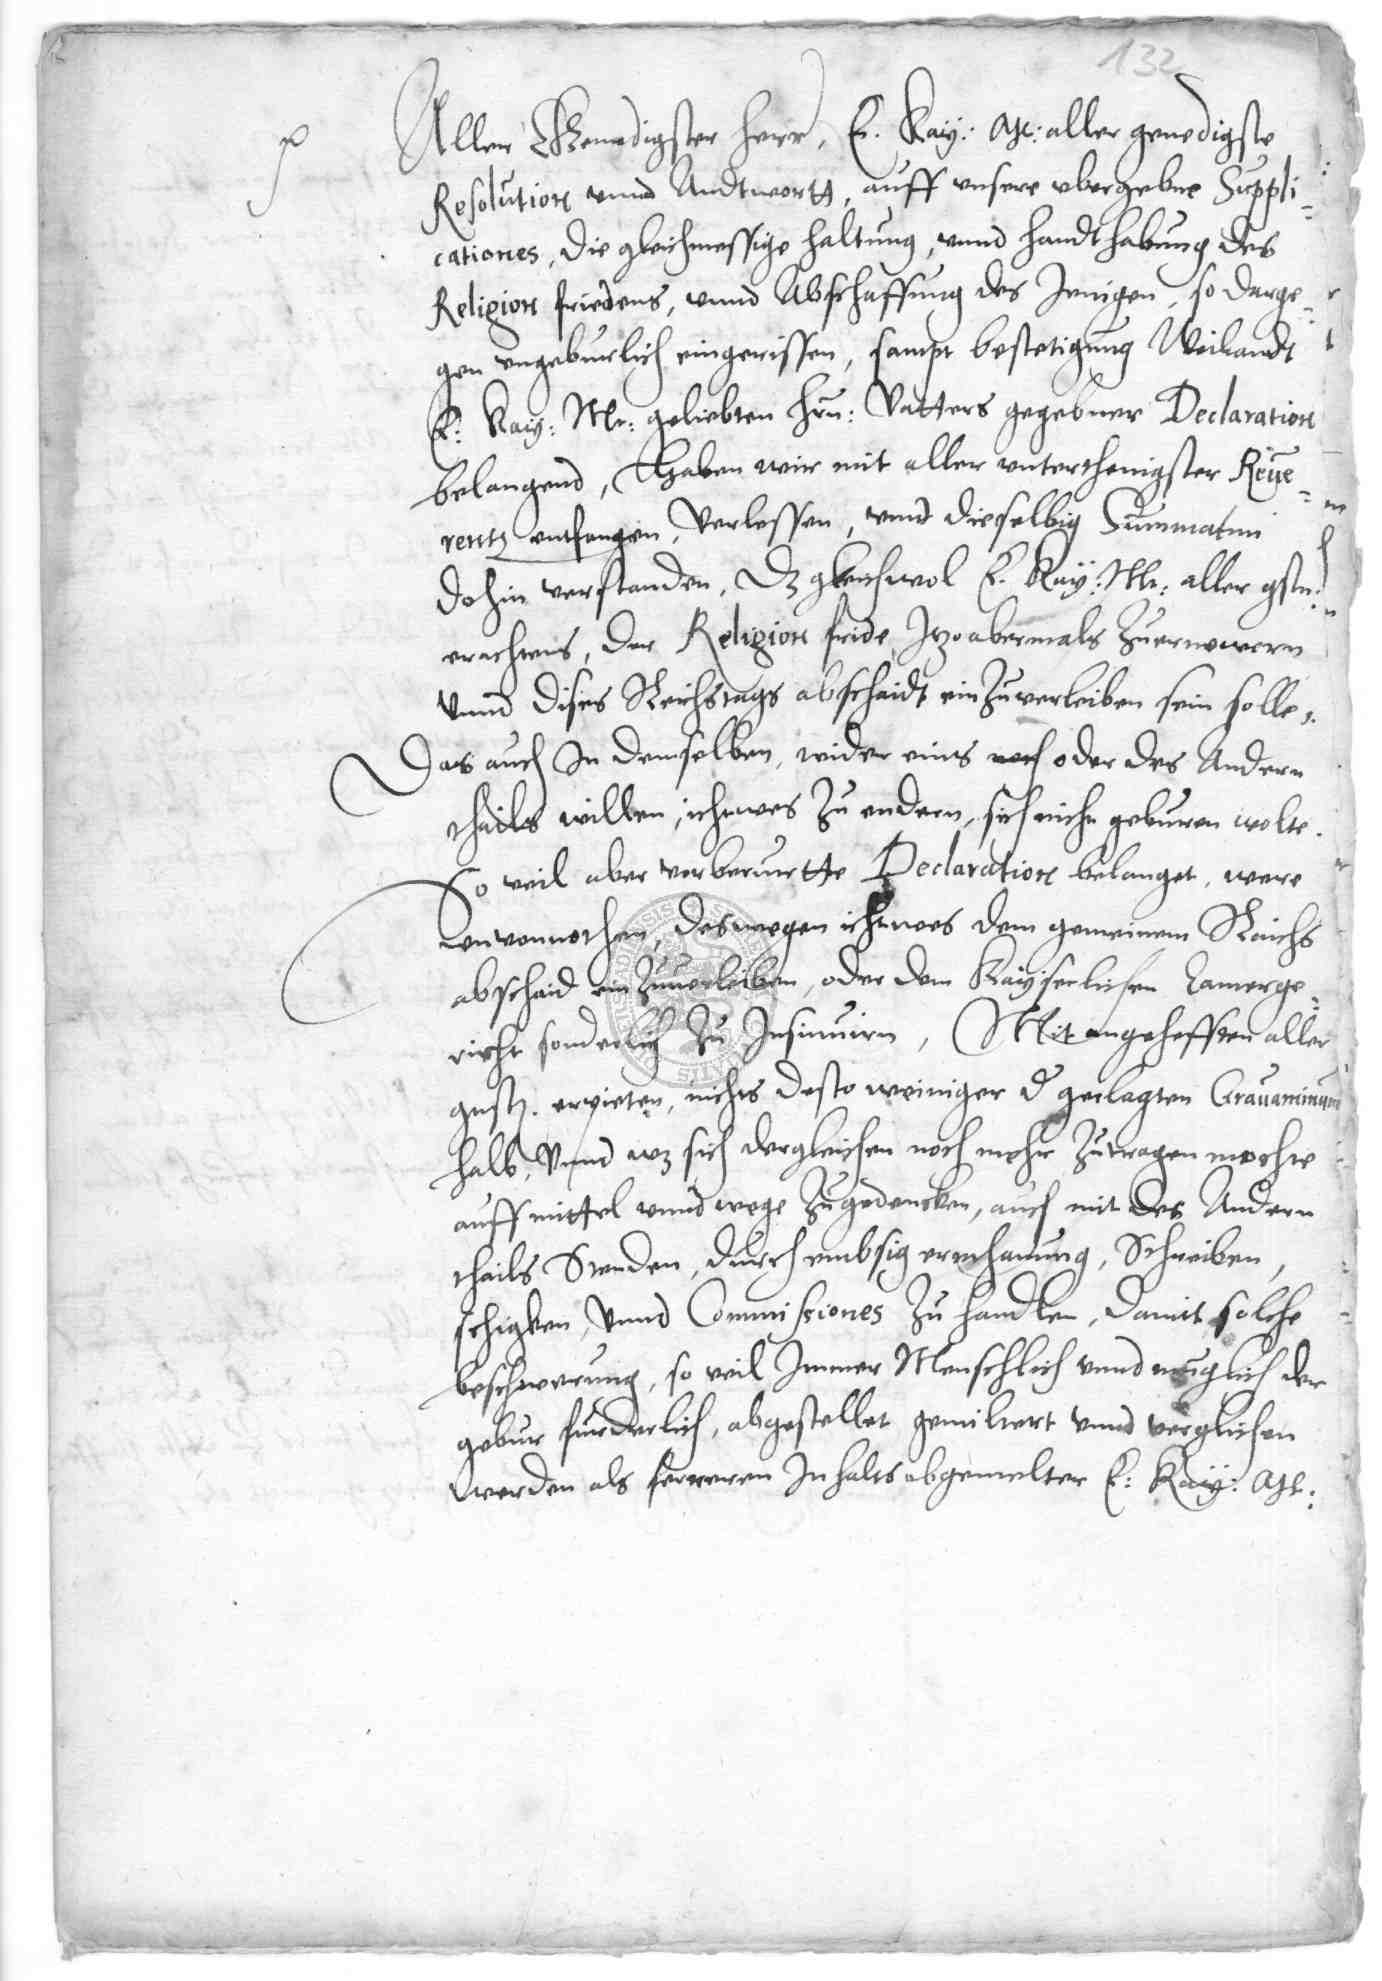 132
Aller Genedigster Herr, E. Kay: Mt: aller genedigste
Resolution unnd Andtwortt, auff unsere ubergebne Suppli=
cationes, die gleichmessige haltung, unnd handthabung des
Religion friedens, unnd Abschaffung des Jenigen, so darge=
gen ungeburlich eingerissen, sampt bestetigung Weilandt
E: Kay: Mt: geliebten Hrn: Vatters gegebner Declaration
belangend, Haben wir mit aller unterthenigster Reue=
rentz entfangen, Verlessen, unnd dieselbig Summatim
dohin verstanden, Dz gleichwol E. Kay: Mt: aller gstn:
erachtens, der Religion fride, Itzo abermals Zuernewern
unnd dises Reichstags abschaidt ein Zuverleiben sein solle,
Das auch In demselben, wider eins oder des Andern
thails willen, ichtwes Zu endern, sich nicht geburen wolte.
So veil aber vorberurtte Declaration belanget, were
unvonnothen, deswegen ichtwes dem gemeinem Reichs
abschaid ein Zuuerleiben, oder dem Kayserlichen Camerge=
richt sonderlich Zu Insinuirn, Mit angehefften aller
gnsts. erpieten, nichts desto weiniger d geclagten Grauaminum
halb, Unnd wz sich dergleichen noch mehr Zutragen mochte
auff mittel unnd wege Zugedencken, auch mit des Andern
thails Stenden, durch embsig ermhanung, Schreiben,
schigken, Unnd Commissiones Zu handlen, damit solche
beschwerung, so veil Immer Menschlich unnd muglich der
gebur furderlich, abgestellet gemiltert unnd verglichen
werden als ferreren Inhalts abgemelter E: Kay: Mt: